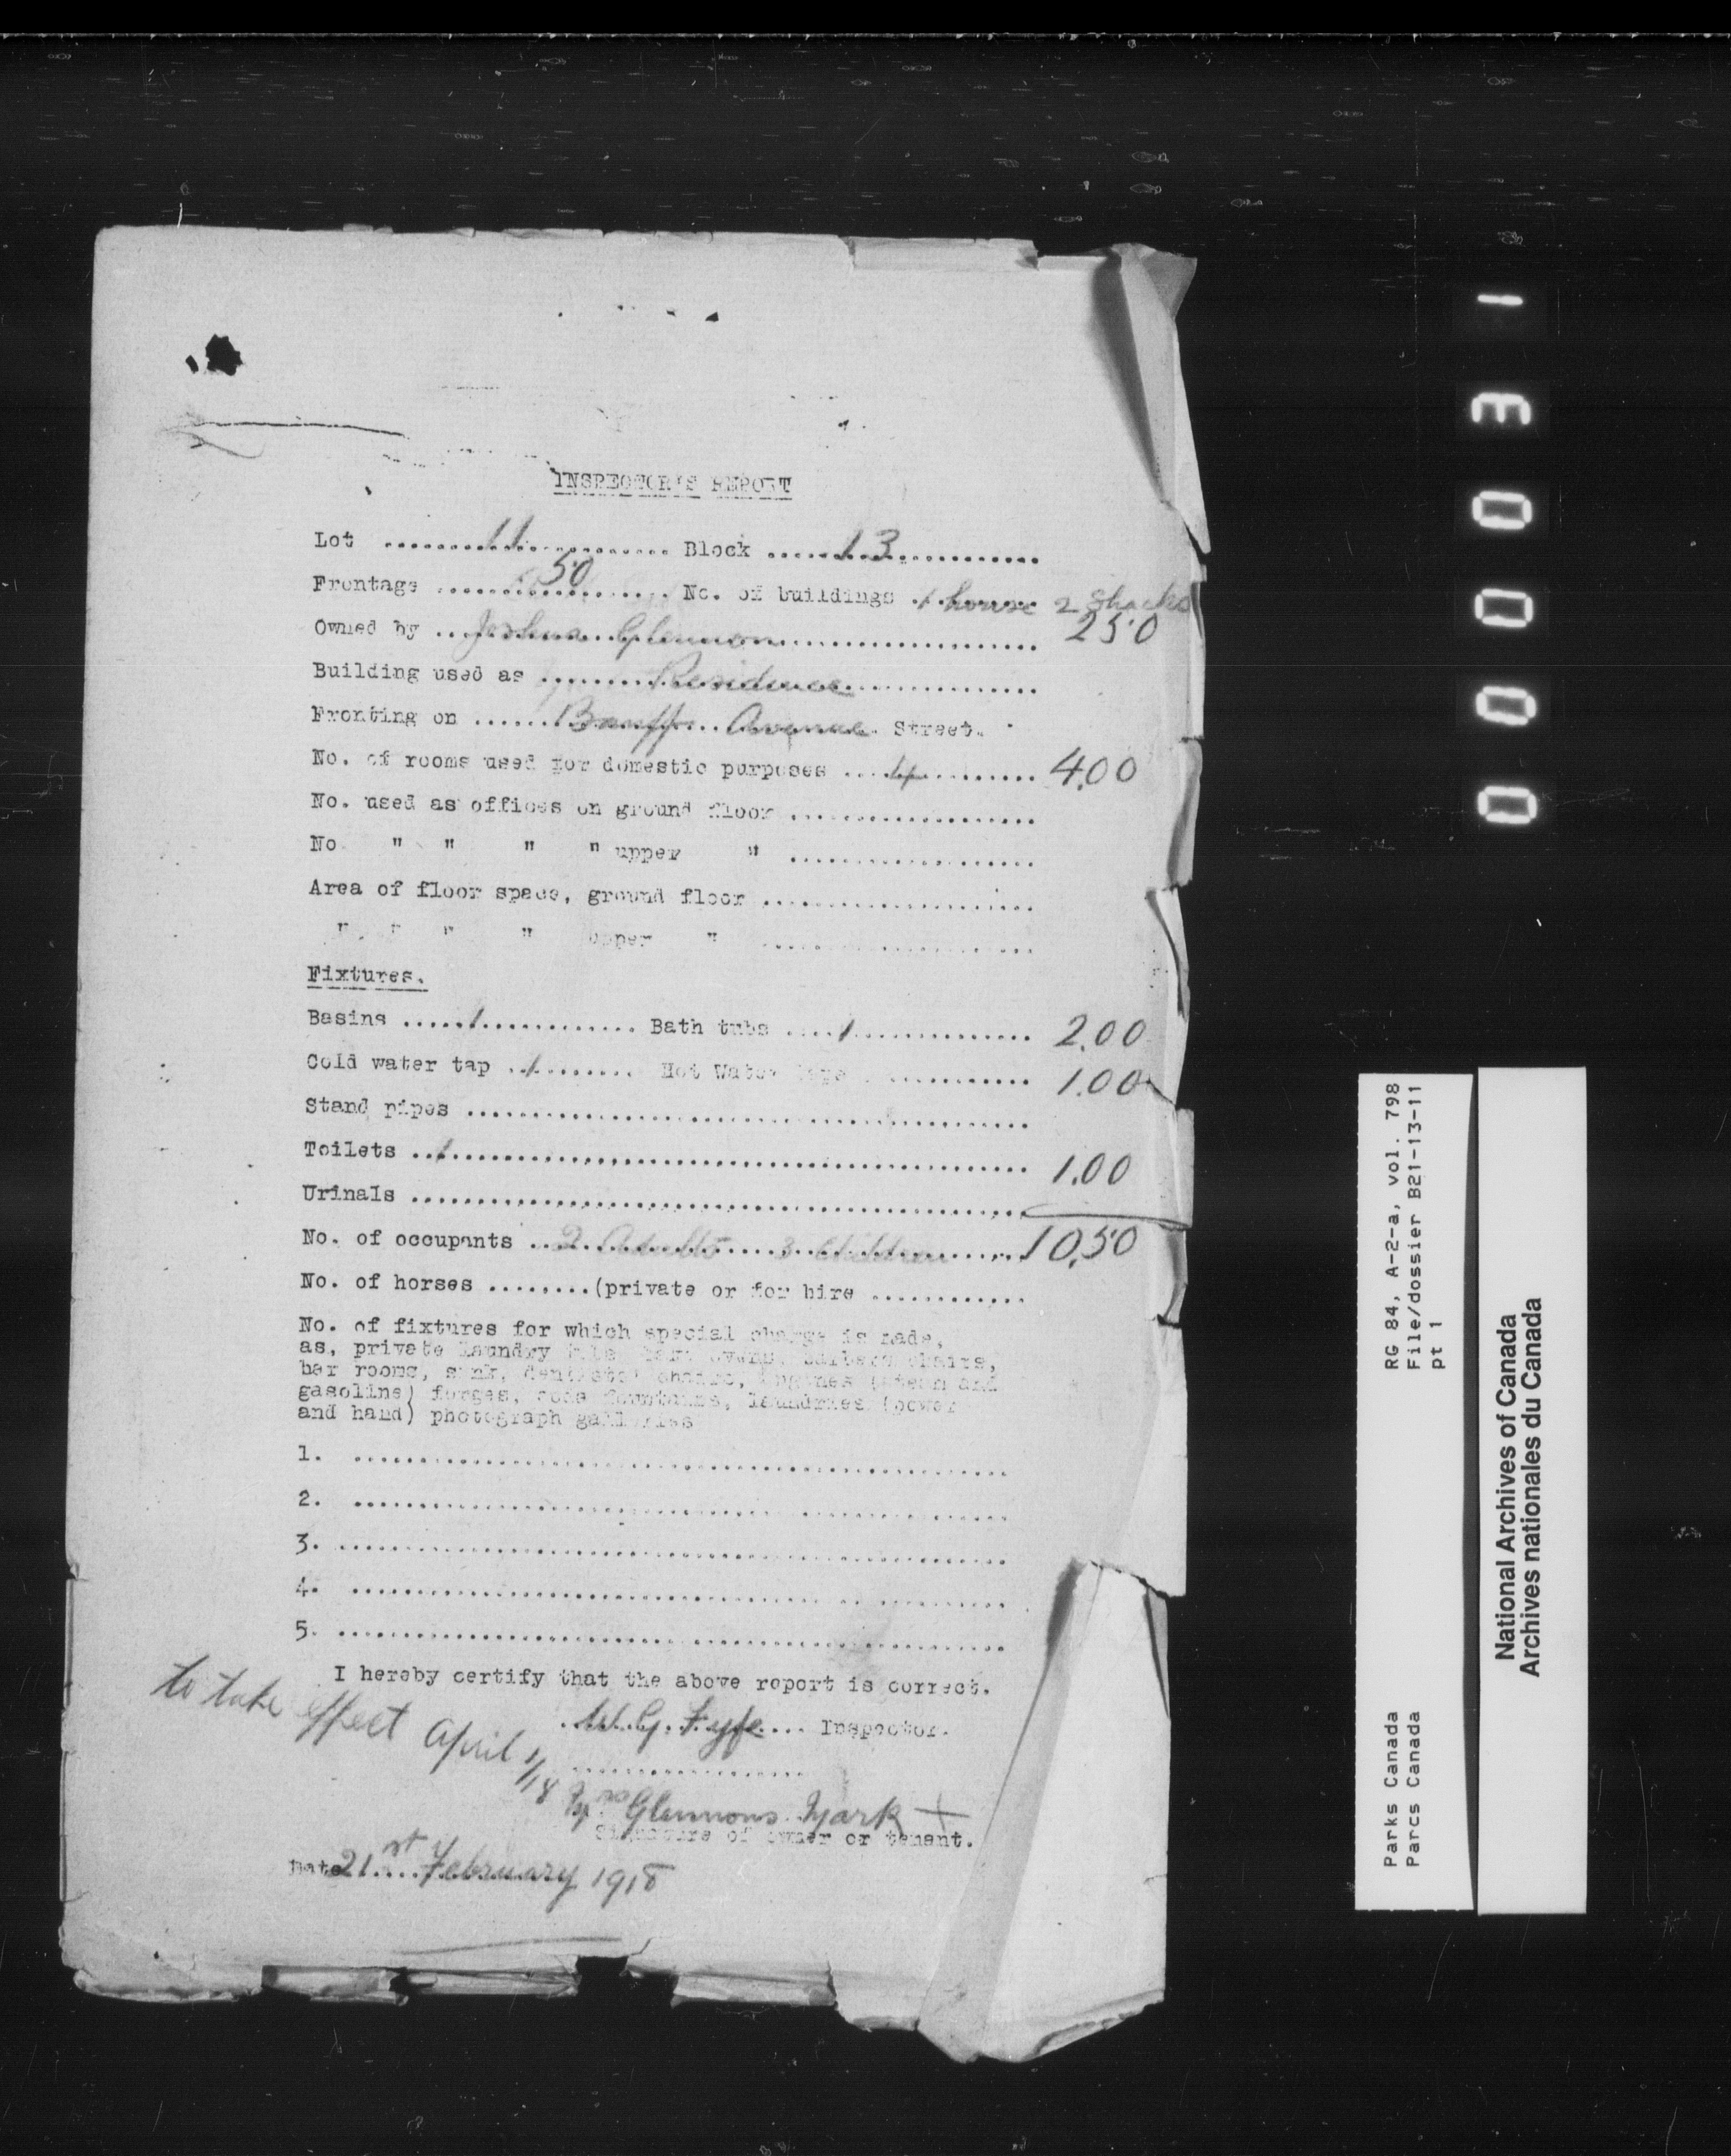 INSPECTOR'S REPORT
Lot ........11........ Block .......13........
Frontage ......50...... No. of buildings .1 house 2 Shacks
Owned by ...Joshua Glennon........ 250
Building used as ........Residence........
Fronting on ......Banff Avenue. Street.
No. of rooms used for domestic purposes ....4....... 4.00
No. used as offices on ground floor ...................
No " " " " upper " ...................
Area of floor space, ground floor ...................
" " " " upper " ...................
Fixtures.
Basins .....1.......... Bath tubs ....1............ 2.00
Cold water tap ..1........ Hot Water taps ............ 1.00
Stand pipes ...................
Toilets ..1................... 1.00
Urinals ...................
No. of occupants ..2 Adults 3 Children... 10.50
No. of horses ........(private or for hire ............
No. of fixtures for which special charge is made,
as, private laundry barbers chairs,
bar rooms, sink, dentists' chairs, engines (steam and
gasoline) forges, soda fountains, laundries (power
and hand) photograph galleries
1. ...................
2. ...................
3. ...................
4. ...................
5. ...................
I hereby certify that the above report is correct.
to take effect April 1/18
.W. G. Fyfe.... Inspector.
...................
Mrs Glennons Mark +
Signature of owner or tenant.
Date 21st February 1918
000031
RG 84, A-2-a, vol. 798
File/dossier B21-13-11
pt 1
Parks Canada
Parcs Canada
National Archives of Canada
Archives nationales du Canada